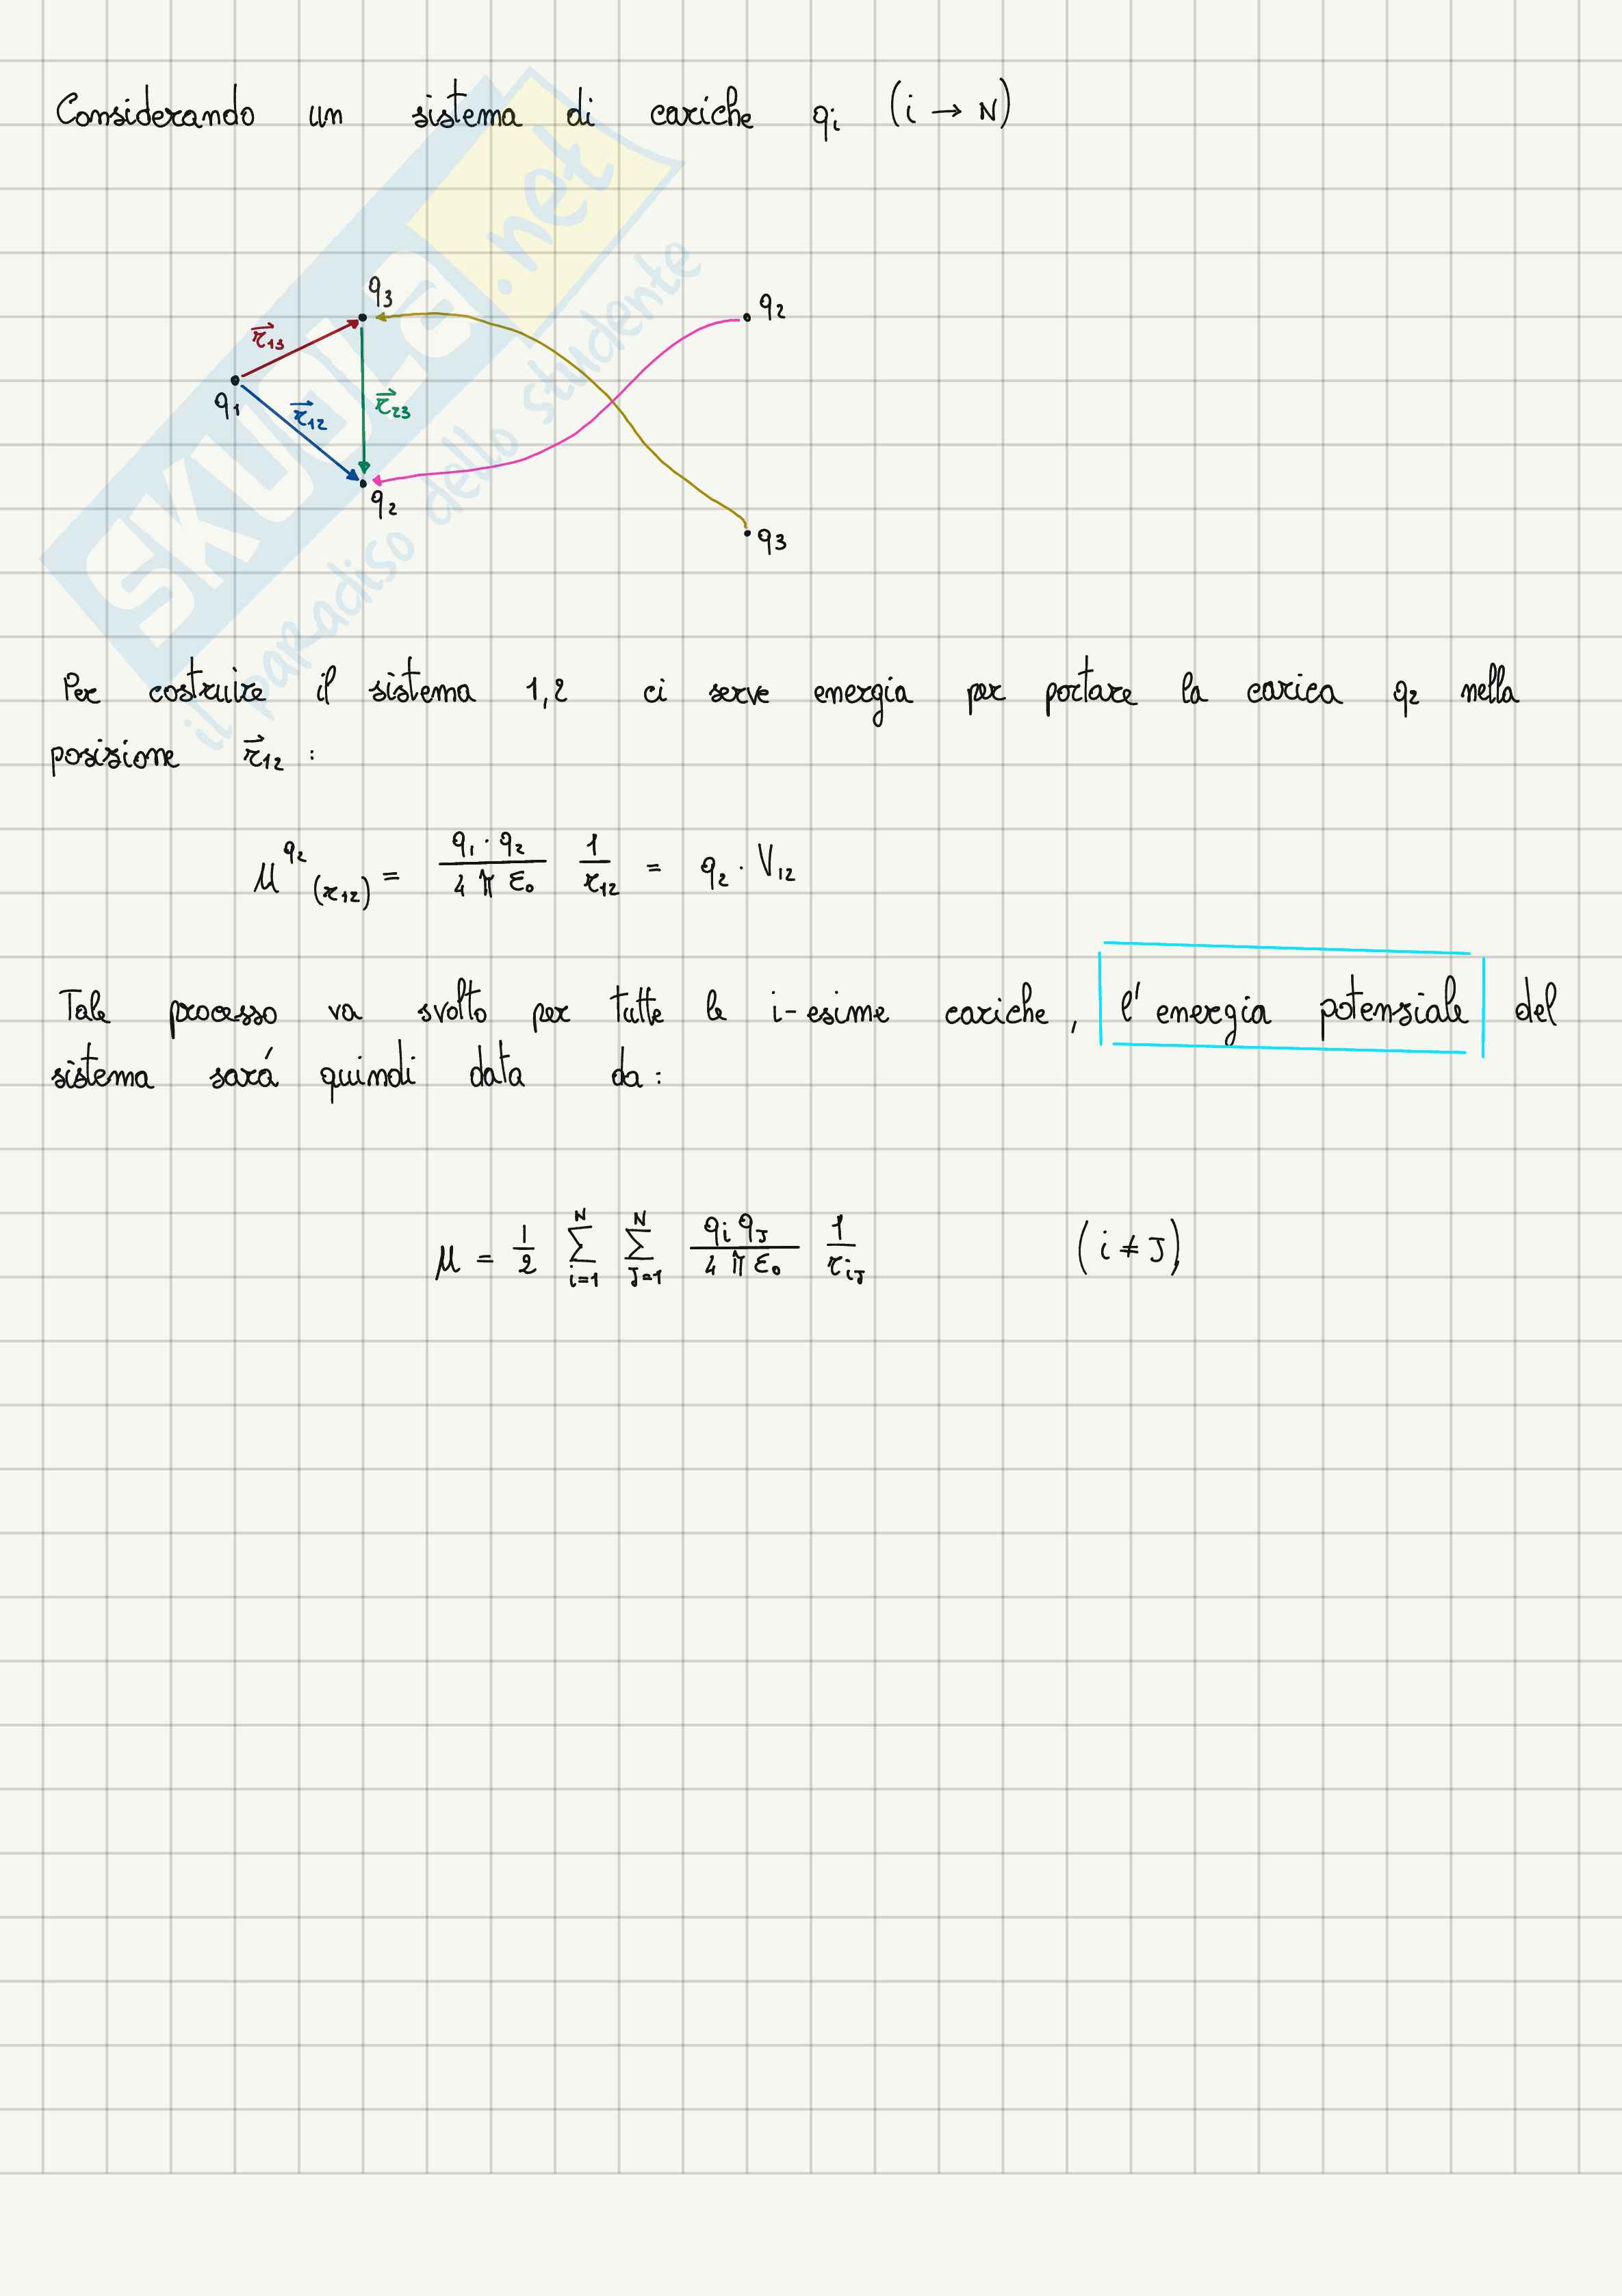 Considerando un sistema di cariche qi (i → N)
SKUOLA.net
il paradiso dello studente
q3
q2
r⃗13
q1
r⃗12
r⃗23
q2
q3
Per costruire il sistema 1,2 ci serve energia per portare la carica q2 nella
posizione r⃗12 :
μ^q2 (r12) = q1 · q2 / 4 π ε0 1 / r12 = q2 · V12
Tale processo va svolto per tutte le i-esime cariche, l'energia potenziale del
sistema sará quindi data da:
μ = 1/2 ∑_{i=1}^{N} ∑_{J=1}^{N} qi qJ / 4 π ε0 1 / riJ (i ≠ J)